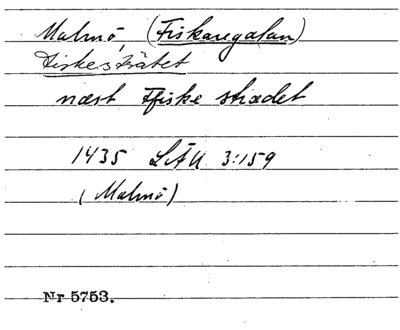 Malmö, (Fiskaregatan)
Fiskesträtet
næst Ffiske strædet
1435 LÄU 3:159
(Malmö)
Nr 5753.